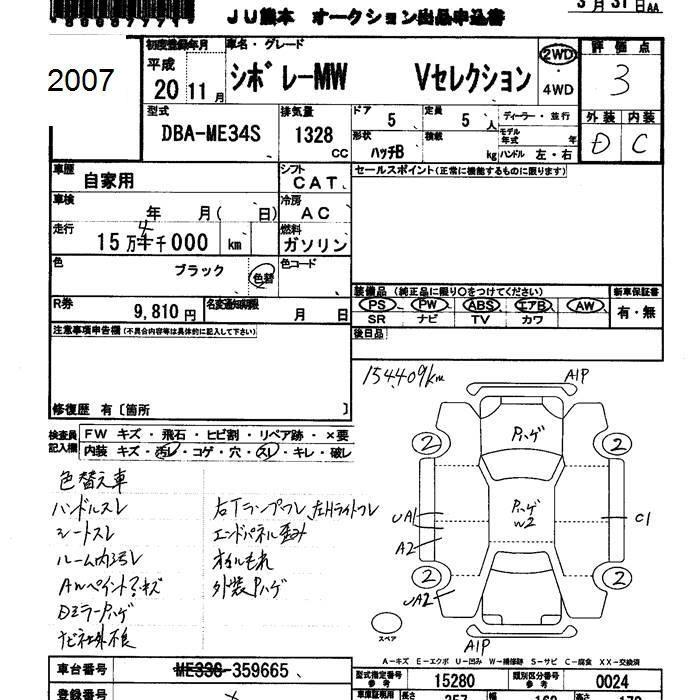 3月31日AA
JU熊本 オークション出品申込書
初度登録年月 車名・グレード 2WD 評価点
2007 平成 20 11月 シボレーMW Vセレクション 4WD 3
型式 排気量 ドア 定員 ディーラー・並行 外装 内装
DBA-ME34S 1328 CC 5 5人 モデル年式 年 D C
形状 積載
ハッチB kg ハンドル 左・右
車歴 自家用 シフト CAT セールスポイント(正常に機能するものに限ります)
車検 年 月( 日) 冷房 AC
走行 15万4千000 km 燃料 ガソリン
色 ブラック 色替 色コード
装備品 (純正品に限り○をつけてください) 新車保証書
PS PW ABS エアB AW 有・無
SR ナビ TV カワ
R券 9,810円 名変通知期限 月 日
注意事項申告欄(不具合内容等は具体的に記入して下さい) 後日品
154,409km
修復歴 有〔箇所 〕
検査員記入欄 FW キズ・飛石・ヒビ割・リペア跡・×要
内装 キズ・汚レ・コゲ・穴・スリ・キレ・破レ
A1P
2 Pハゲ 2
UA1 Pハゲ W2 C1
A2
2 2
UA2
スペア
A1P
色替え車
ハンドルスレ 右Tランプワレ、左Hライトワレ
シートスレ エンドパネル歪み
ルーム内汚レ オイルもれ
AWペイントアキズ 外装Pハゲ
Dミラーハゲ
ナビ社外不良
A-キズ E-エクボ U-凹み W-補修跡 S-サビ C-腐食 XX-交換済
車台番号 ME336-359665 型式指定番号 参考 15280 類別区分番号 参考 0024
登録番号 車庫証明用 参考 長さ 357 幅 168 高さ 170